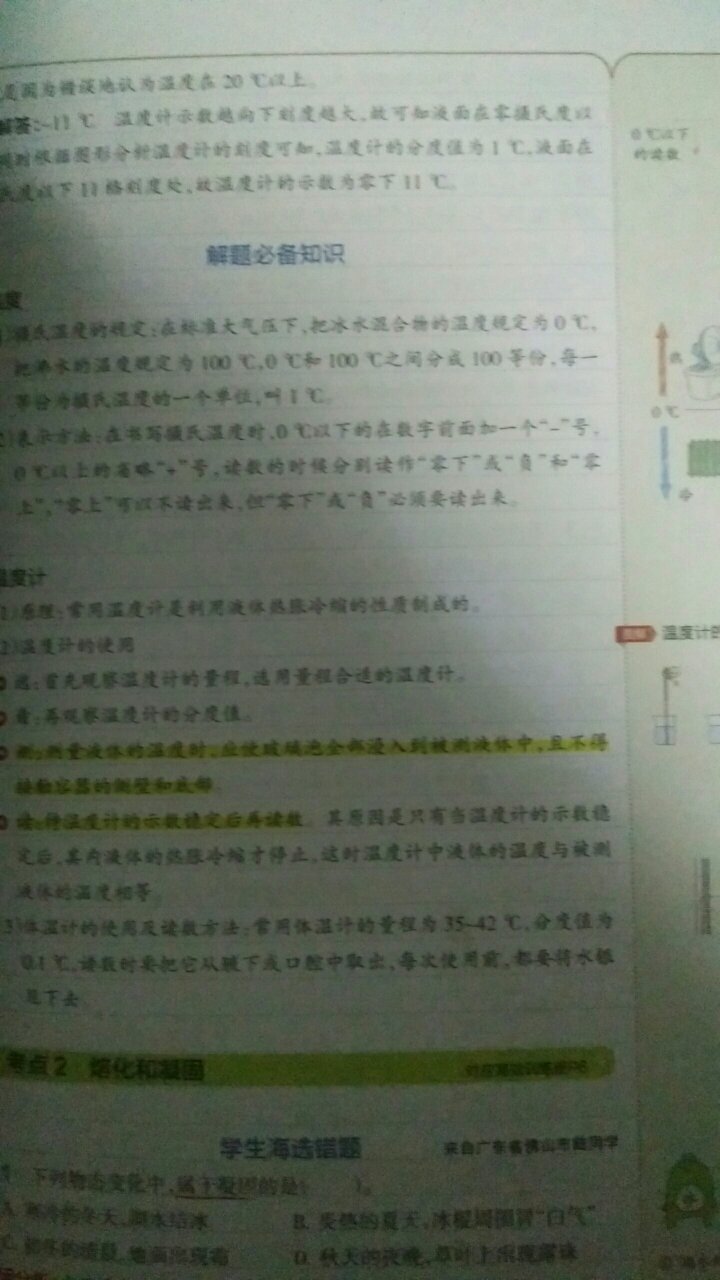 是因为错误地认为温度在 20 ℃以上。
解答:-11 ℃ 温度计示数越向下刻度越大,故可知液面在零摄氏度以
同时根据图形分析温度计的刻度可知,温度计的分度值为 1 ℃,液面在
氏度以下 11 格刻度处,故温度计的示数为零下 11 ℃。
0 ℃以下
的读数
解题必备知识
温度
摄氏温度的规定:在标准大气压下,把冰水混合物的温度规定为 0 ℃,
把沸水的温度规定为 100 ℃,0 ℃和 100 ℃之间分成 100 等份,每一
等份为摄氏温度的一个单位,叫 1 ℃。
表示方法:在书写摄氏温度时,0 ℃以下的在数字前面加一个“-”号,
0 ℃以上的省略“+”号,读数的时候分别读作“零下”或“负”和“零
上”,“零上”可以不读出来,但“零下”或“负”必须要读出来。
热
0 ℃
冷
温度计
(1)原理:常用温度计是利用液体热胀冷缩的性质制成的。
(2)温度计的使用
选:首先观察温度计的量程,选用量程合适的温度计。
看:再观察温度计的分度值。
测:测量液体的温度时,应使玻璃泡全部浸入到被测液体中,且不得
接触容器的侧壁和底部。
读:待温度计的示数稳定后再读数。其原因是只有当温度计的示数稳
定后,其内液体的热胀冷缩才停止,这时温度计中液体的温度与被测
液体的温度相等。
(3)体温计的使用及读数方法:常用体温计的量程为 35~42 ℃,分度值为
0.1 ℃,读数时要把它从腋下或口腔中取出,每次使用前,都要将水银
甩下去。
温度计的
考点 2 熔化和凝固
学生海选错题
来自广东省佛山市戴同学
下列物态变化中,属于凝固的是( )。
A. 寒冷的冬天,湖水结冰
B. 炎热的夏天,冰棍周围冒“白气”
C. 初冬的清晨,地面出现霜
D. 秋天的夜晚,草叶上出现露珠